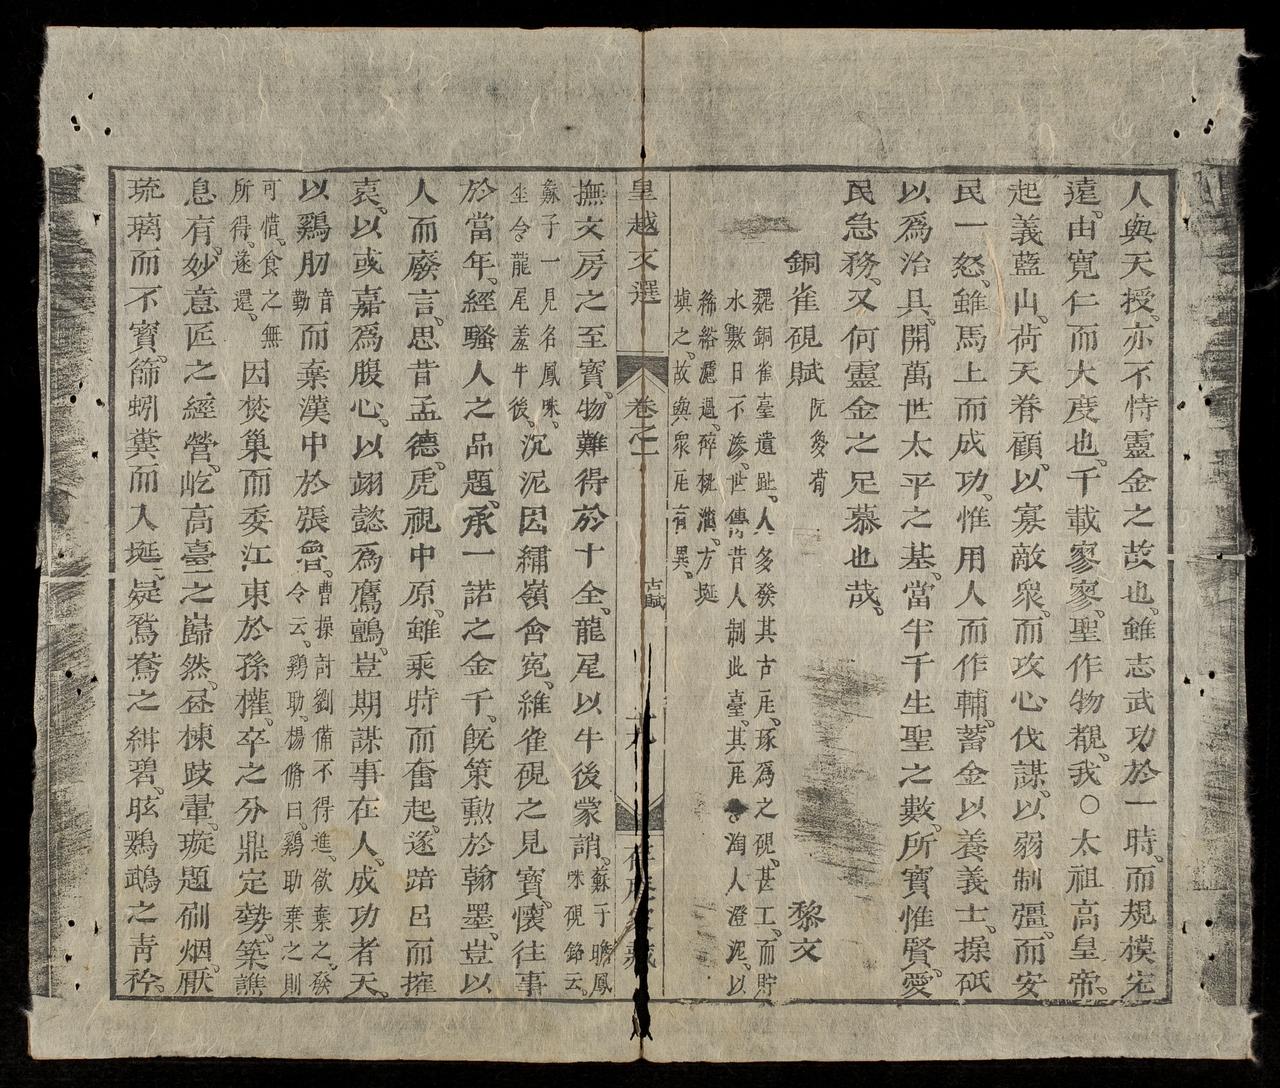 人與天授。亦不恃靈金之故也。雖志武功於一時。而規模宏
遠。由寬仁而大度也。千載寥寥。聖作物覩。我○太祖高皇帝。
起義藍山。荷天眷顧。以寡敵衆。而攻心伐謀。以弱制彊。而安
民一怒。雖馬上而成功。惟用人而作輔。蓄金以養義士。操砥
以爲治具。開萬世太平之基。當半千生聖之數。所寶惟賢。愛
民急務。又何靈金之足慕也哉。
銅雀硯賦 阮 黎文
魏銅雀臺遺趾。人多發其古瓦。琢爲之硯。甚工。而貯
水。數日不滲。世傳昔人制此臺。其瓦淘人澄泥。以
絺綌濾過。碎桃油。方埏
埴之。故與衆瓦有異。
撫文房之至寶。物難得於十全。龍尾以牛後蒙誚。蘇子瞻鳳
咮硯銘云。
蘇子一見名鳳咮。
坐令龍尾羞牛後。沉泥因繡嶺含寃。維雀硯之見寶。懷往事
於當年。經騷人之品題。承一諾之金千。旣策勳於翰墨。豈以
人而廢言。思昔孟德。虎視中原。雖乘時而奮起。遂踣呂而摧
袁。以或嘉爲腹心。以翊懿爲鷹鸇。豈期謀事在人。成功者天。
以鷄肋音
勒而棄漢中於張魯。曹操討劉備不得進。欲棄之。發
令云。鷄肋。楊脩曰。鷄肋棄之則
可惜。食之無
所得。遂還。因焚巢而委江東於孫權。卒之分鼎定勢。築譙
息有。妙意匠之經營。屹高臺之巋然。叠棟歧翬。璇題刷烟。厭
琉璃而不寶。篩蚓糞而入埏。疑鴛鴦之絣碧。眩鸂鵡之靑衿。
皇越文選
卷之一
古賦
十九